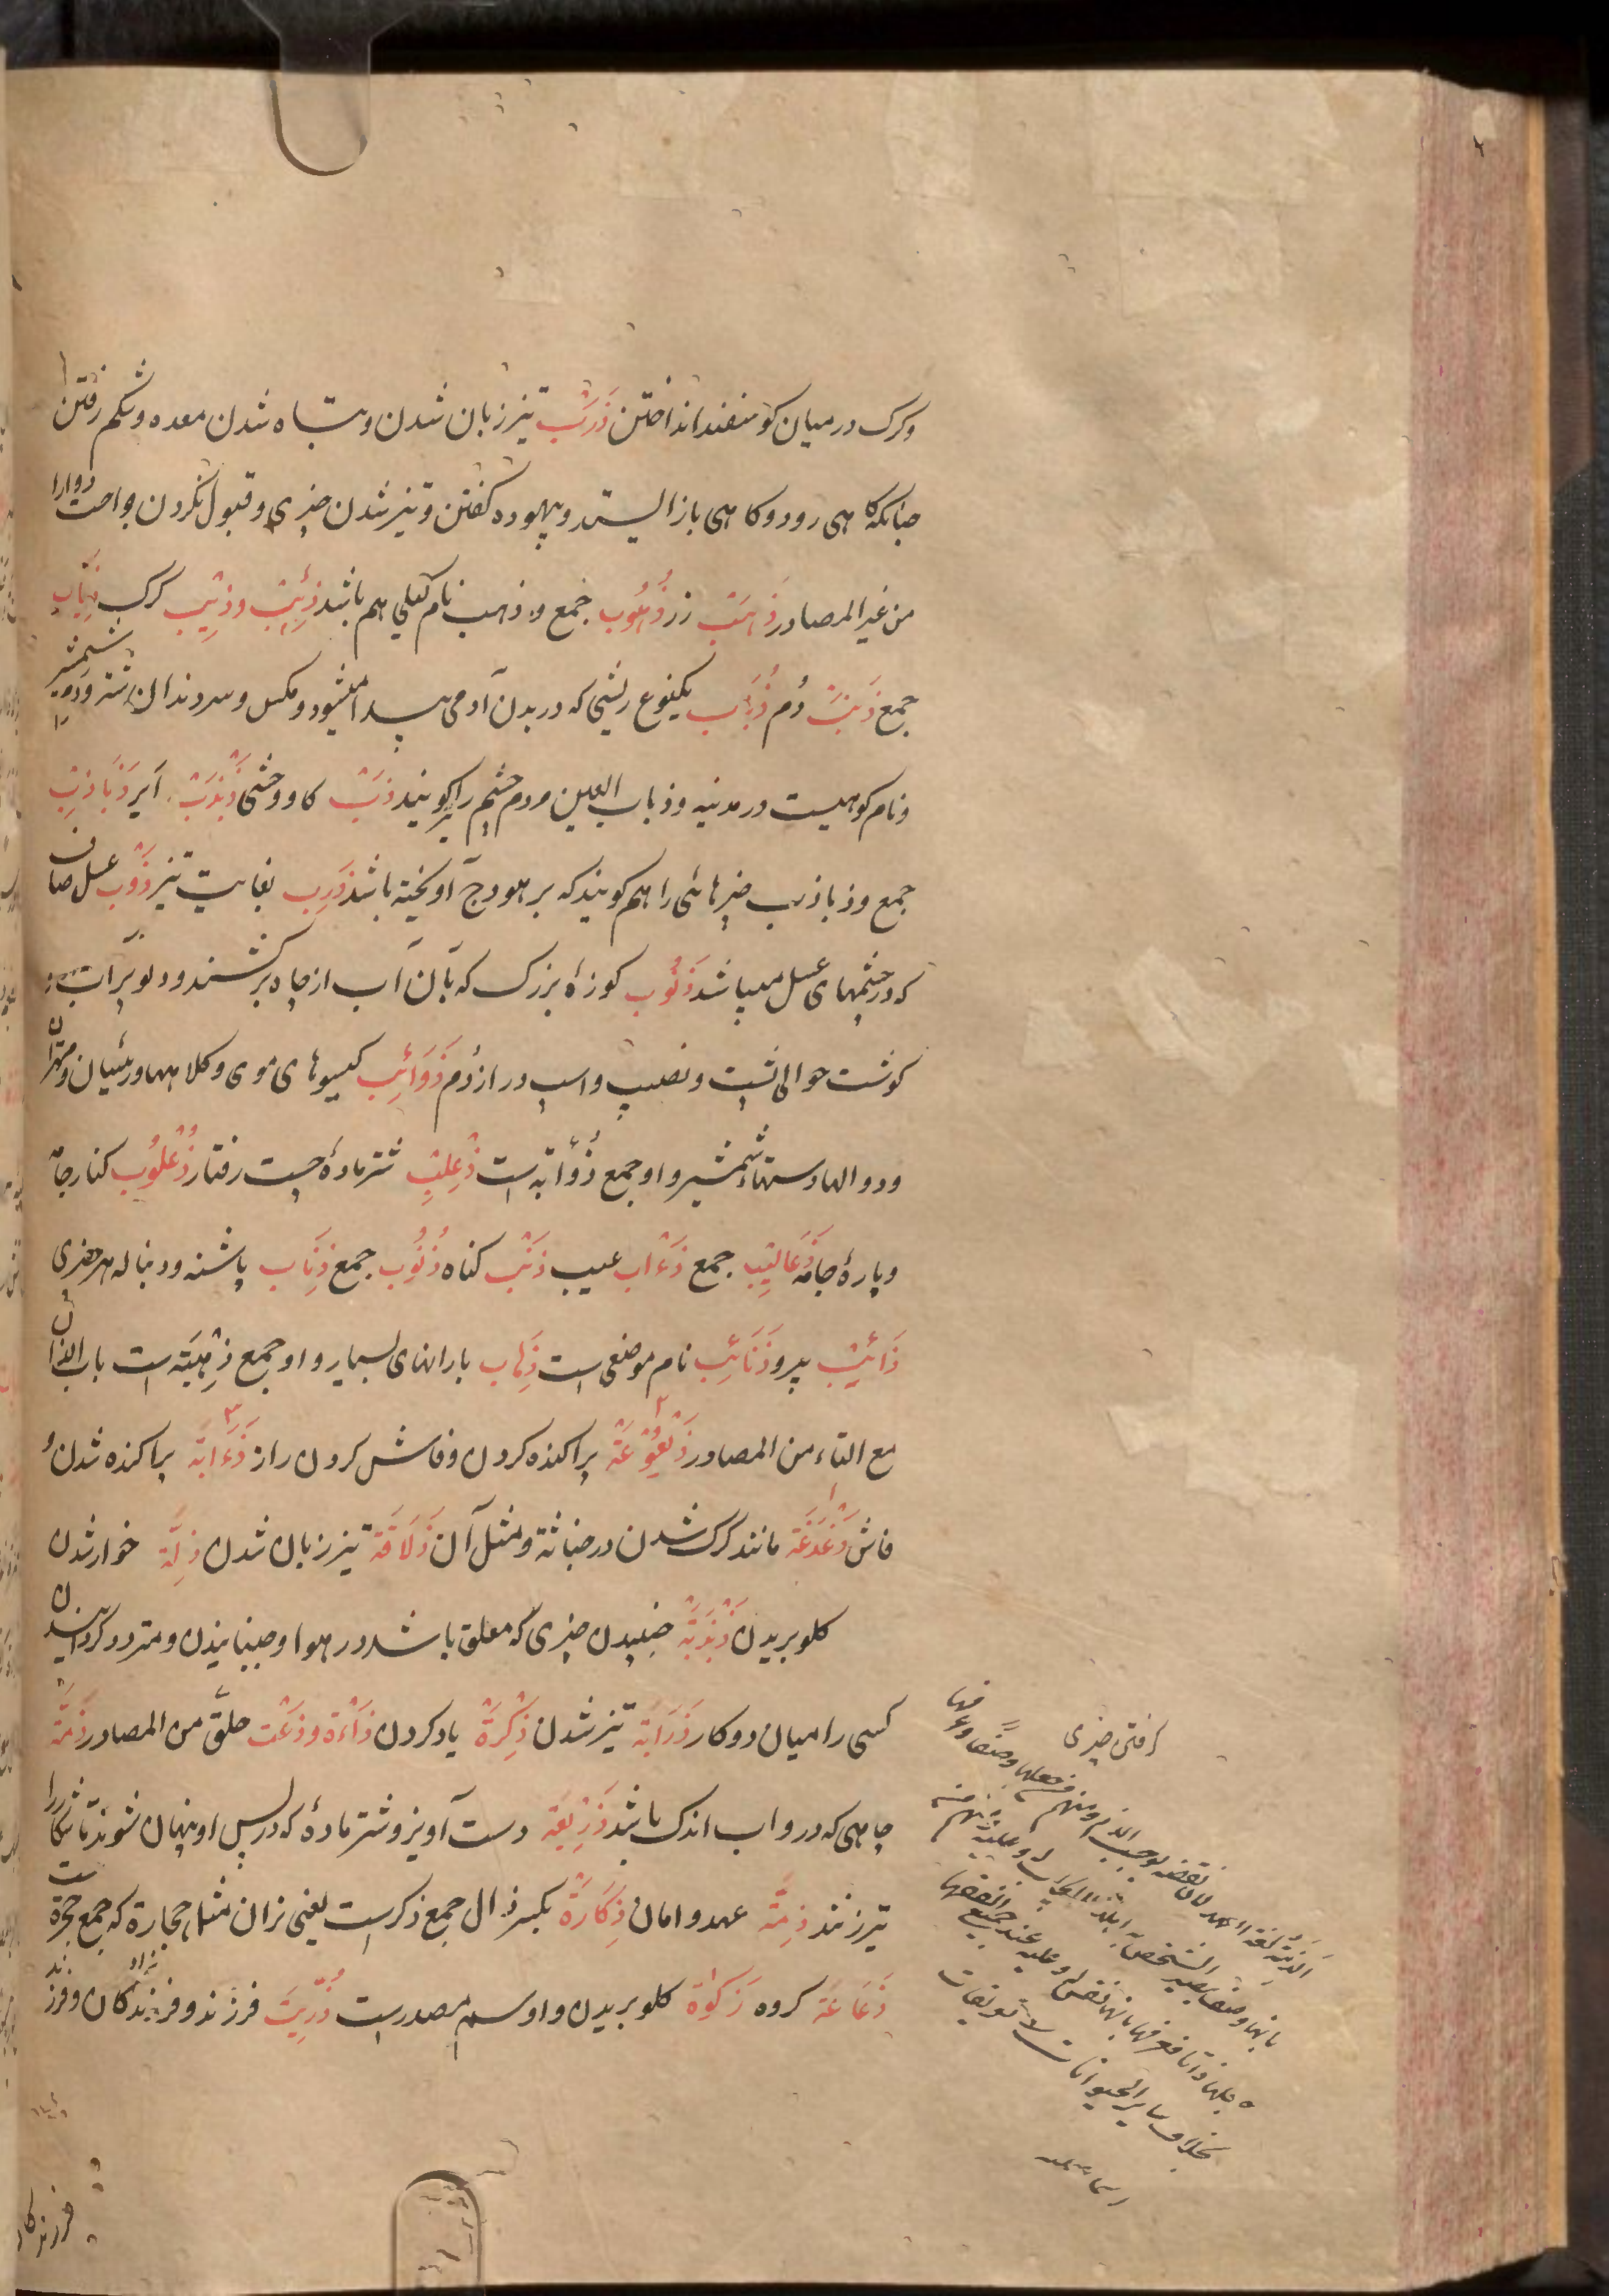 وکرک در میان کوسفند انداختن ذَرَب تیز زبان شدن و تباه شدن معده و شکم رفتن
چنانکه کاهی رود و کاهی باز ایستد و بیهوده کفتن و تیز شدن چیزی و قبول نکردن جراحت دوارا
من غیر المصادر ذَهَب زر ذُهُوب جمع و ذهب نام کیلی هم باشد ذِئب و ذِیب کرک ذِیاب
جمع ذَنَب دُم ذُبَاب یکنوع ریشی که در بدن آدمی پیدا میشود و مکس و سر دندان شتر و دم شمشیر
و نام کوهیست در مدینه و ذباب العین مردم چشم را کویند ذَبّ کاو وحشی ذَبْذَب ایر ذَبَاذِب
جمع و ذباذب چیزهائی را هم کویند که بر هودج آویخته باشد ذَرِب بغایت تیز ذَوْب عسل صاف
که در چشمهای عسل میباشد ذَنُوب کوزهٔ بزرک که بآن آب از چاه برکشند و دلو پر آب و
کوشت حوالی پشت و نصیب و اسب دراز دُم ذَوَائِب کیسوهای موی و کلاهها و رئیسان و مهتران
و دوالها دستهاء شمشیر و او جمع ذُؤابه است ذِعْلِب شتر مادهٔ چست رفتار ذُعْلُوب کنار جامه
و پارهٔ جامه ذَعَالِیب جمع ذَءْاب عیب ذَنْب کناه ذُنُوب جمع ذِنَاب پاشنه و دنباله هر چیزی
ذَائِب پیرو ذَنَائِب نام موضعی است ذِهَاب بارانهای بسیار و او جمع ذِهْبَة است باب الذال
مع التاء من المصادر ذَیْعُوعَة پراکنده کردن و فاش کردن راز ذَءَابَة پراکنده شدن و
فاش ذَعْذَعَة مانند کرک شدن در خباثة و مثل آن ذَلَاقَة تیز زبان شدن ذِلَّة خوار شدن
کلو بریدن ذَبْذَبَة جنبیدن چیزی که معلق باشد در هوا و جنبانیدن و متردد کردانیدن
کسی را میان دو کار ذَرَابَة تیز شدن ذِکْرَة یاد کردن ذَاءة و ذعَت حلق من المصادر ذَمَّة
چاهی که درو اب اندک باشد ذَرِیعَة دست آویز و شتر مادهٔ که در پس او پنهان شوند تا شکار را
تیر زنند ذِمَّة عهد و امان ذِکَارَة بکسر ذال جمع ذکرست یعنی نران مثل حجارة که جمع حجرة است
ذَعَاعَة کروه زَکوٰة کلو بریدن و او اسم مصدرست ذُرِّیَت فرزند و فرزندکان و فرزند
کرفتن چیزی
الذمة لغة العهد لان نقضه یوجب الذم ومنهم من جعلها وصفا وعرفها
بانها وصف یصیر الشخص به اهلا للایجاب له وعلیه ومنهم من
جعلها ذاتا فعرفها بانها نفس له وعلیه عند جمیع الفقهاء
بخلاف سایر الحیوانات تعریفات
فرزندکان